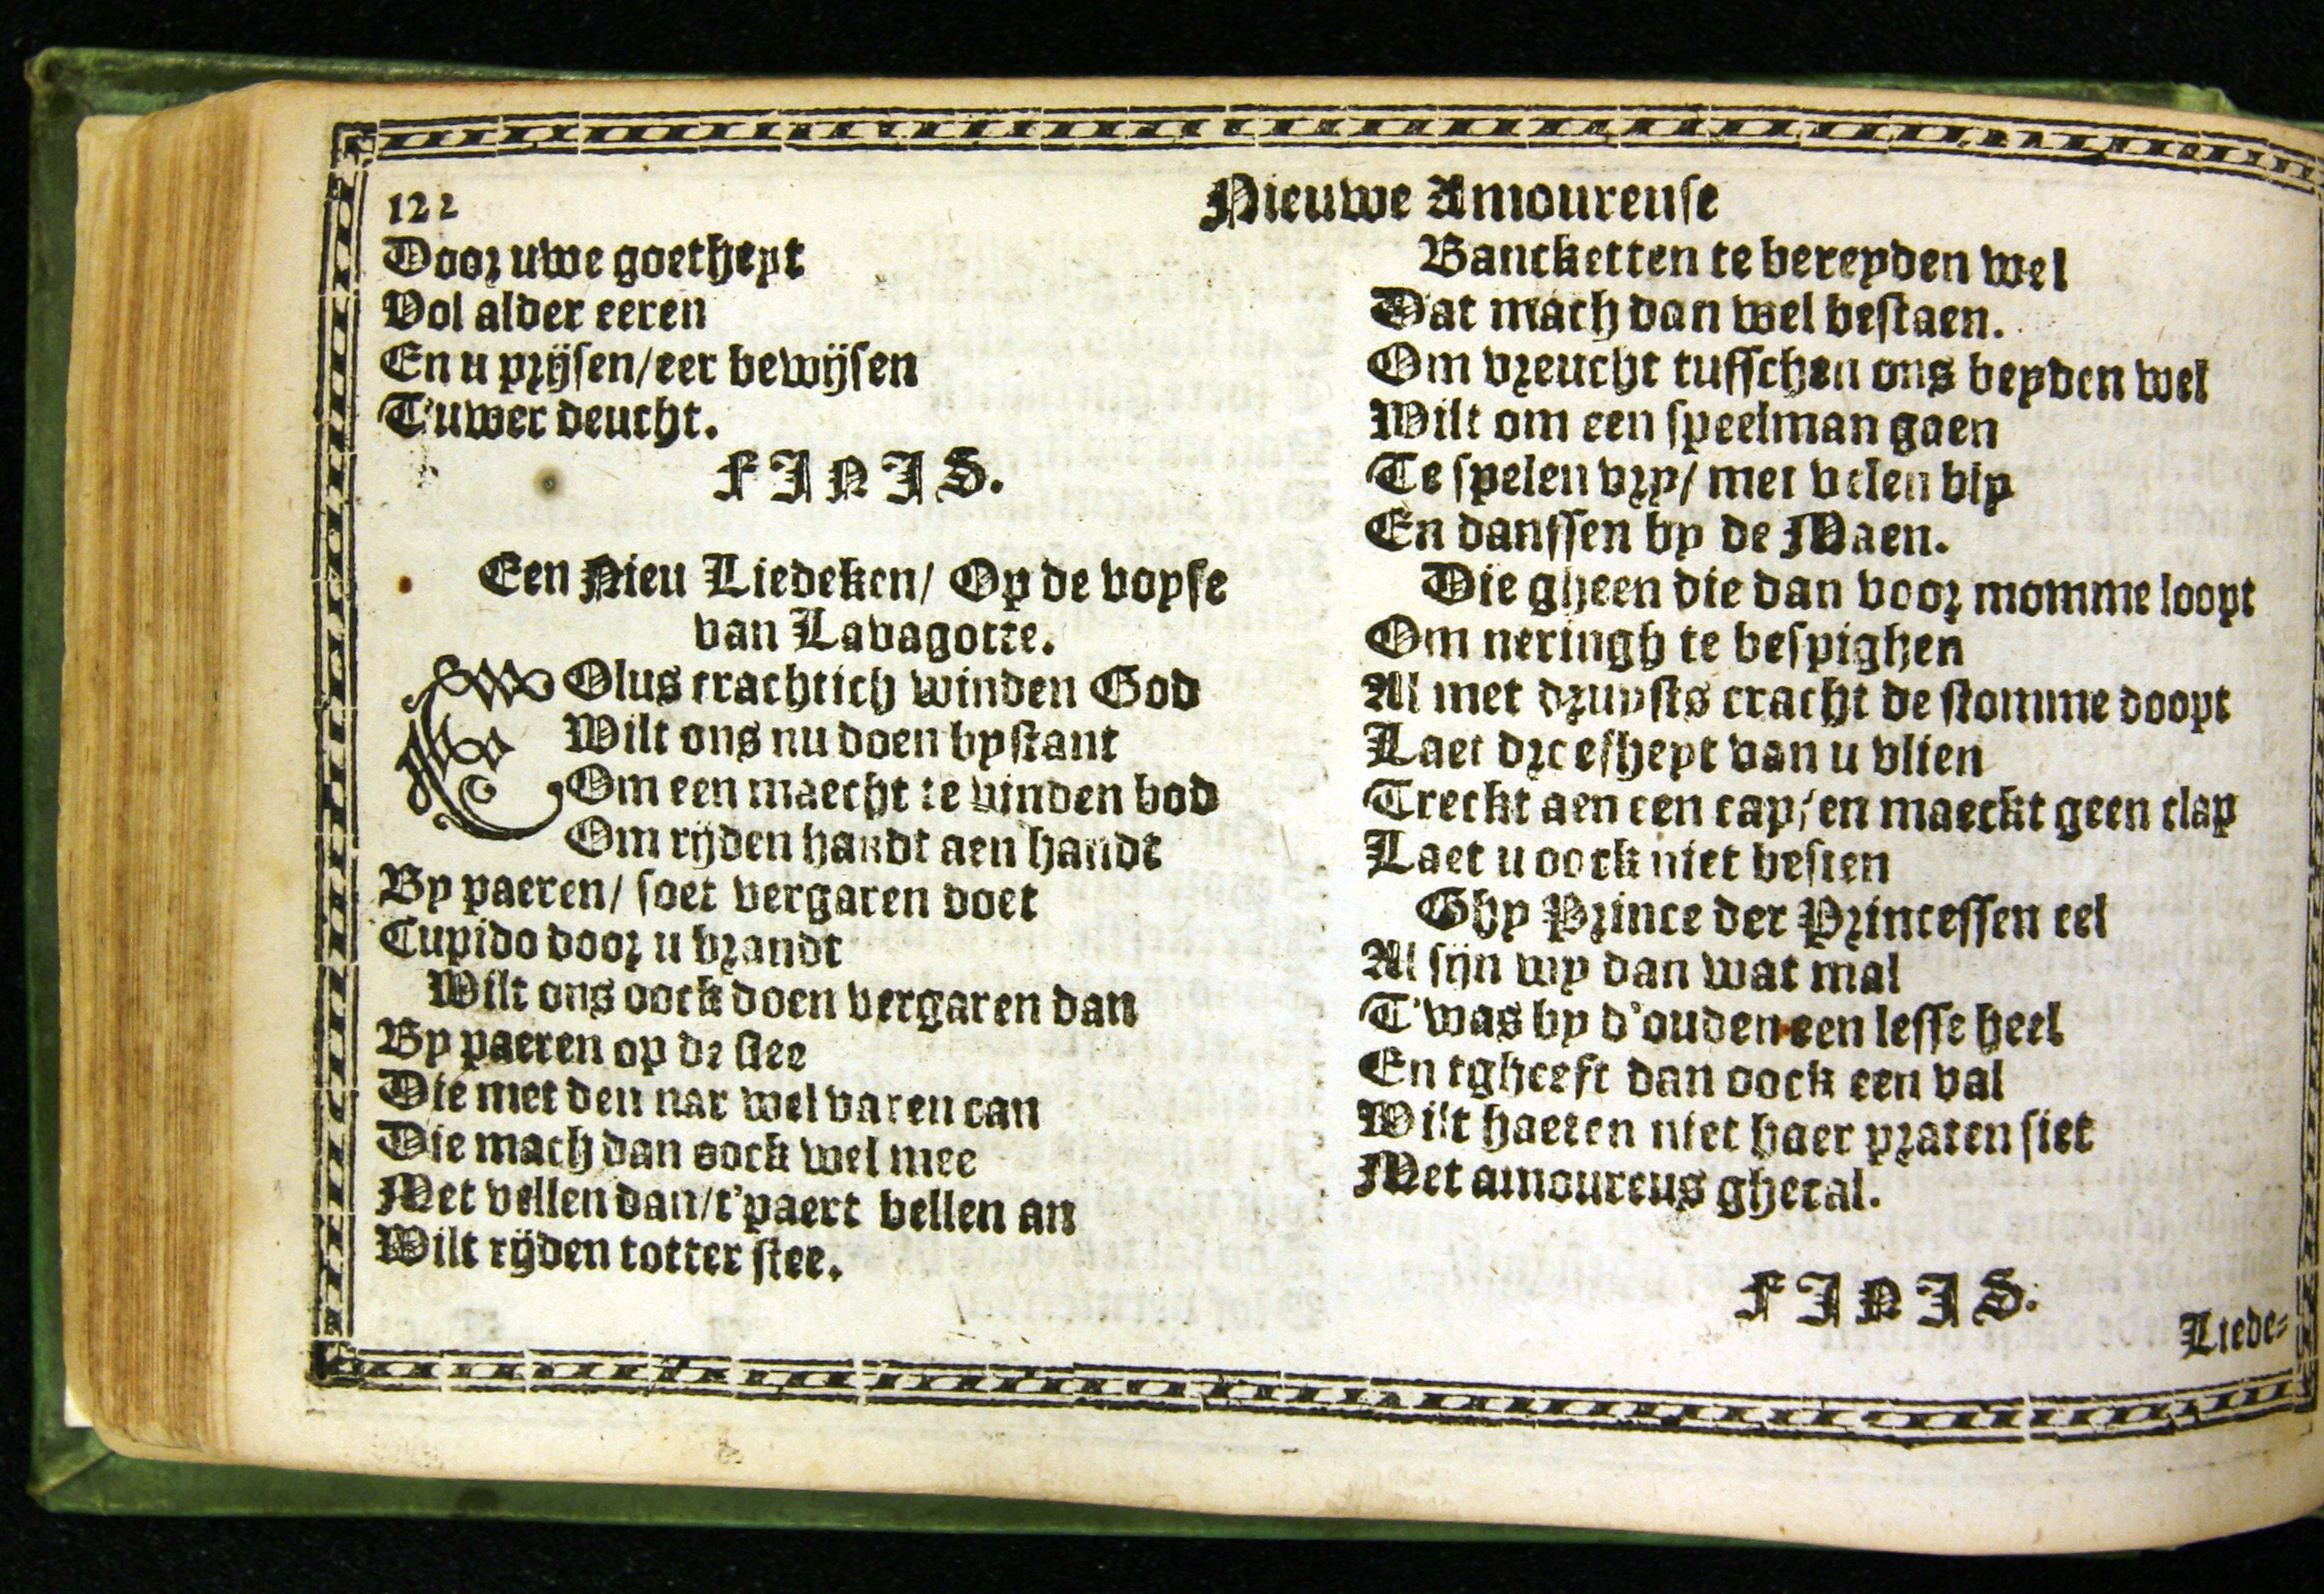 122
Nieuwe Amoureuse
Door uwe goetheyt
Vol alder eeren
En u prijsen/eer bewijsen
T'uwer deucht.
FINIS.
Een Nieu Liedeken/ Op de voyse
van Lavagotte.
EOlus crachtich winden God
Wilt ons nu doen bystant
Om een maecht te vinden bod
Om rijden handt aen handt
By paeren/ soet vergaren doet
Cupido door u brandt
Wilt ons oock doen vergaren dan
By paeren op de slee
Die met den nar wel varen can
Die mach dan oock wel mee
Met vellen dan/t'paert bellen an
Wilt rijden totter stee.
Bancketten te bereyden wel
Dat mach dan wel bestaen.
Om vreucht tusschen ons beyden wel
Wilt om een speelman gaen
Te spelen vry/ met velen bly
En danssen by de Maen.
Die gheen die dan voor momme loopt
Om neringh te bespighen
Al met druysts cracht de stomme doopt
Laet droefheyt van u vlien
Treckt aen een cap/en maeckt geen clap
Laet u oock niet besien
Ghy Prince der Princessen eel
Al sijn wy dan wat mal
T'was by d'ouden een lesse heel
En tgheeft dan oock een val
Wilt haeten niet haer praten siet
Met amoureus ghetal.
FINIS.
Liede-